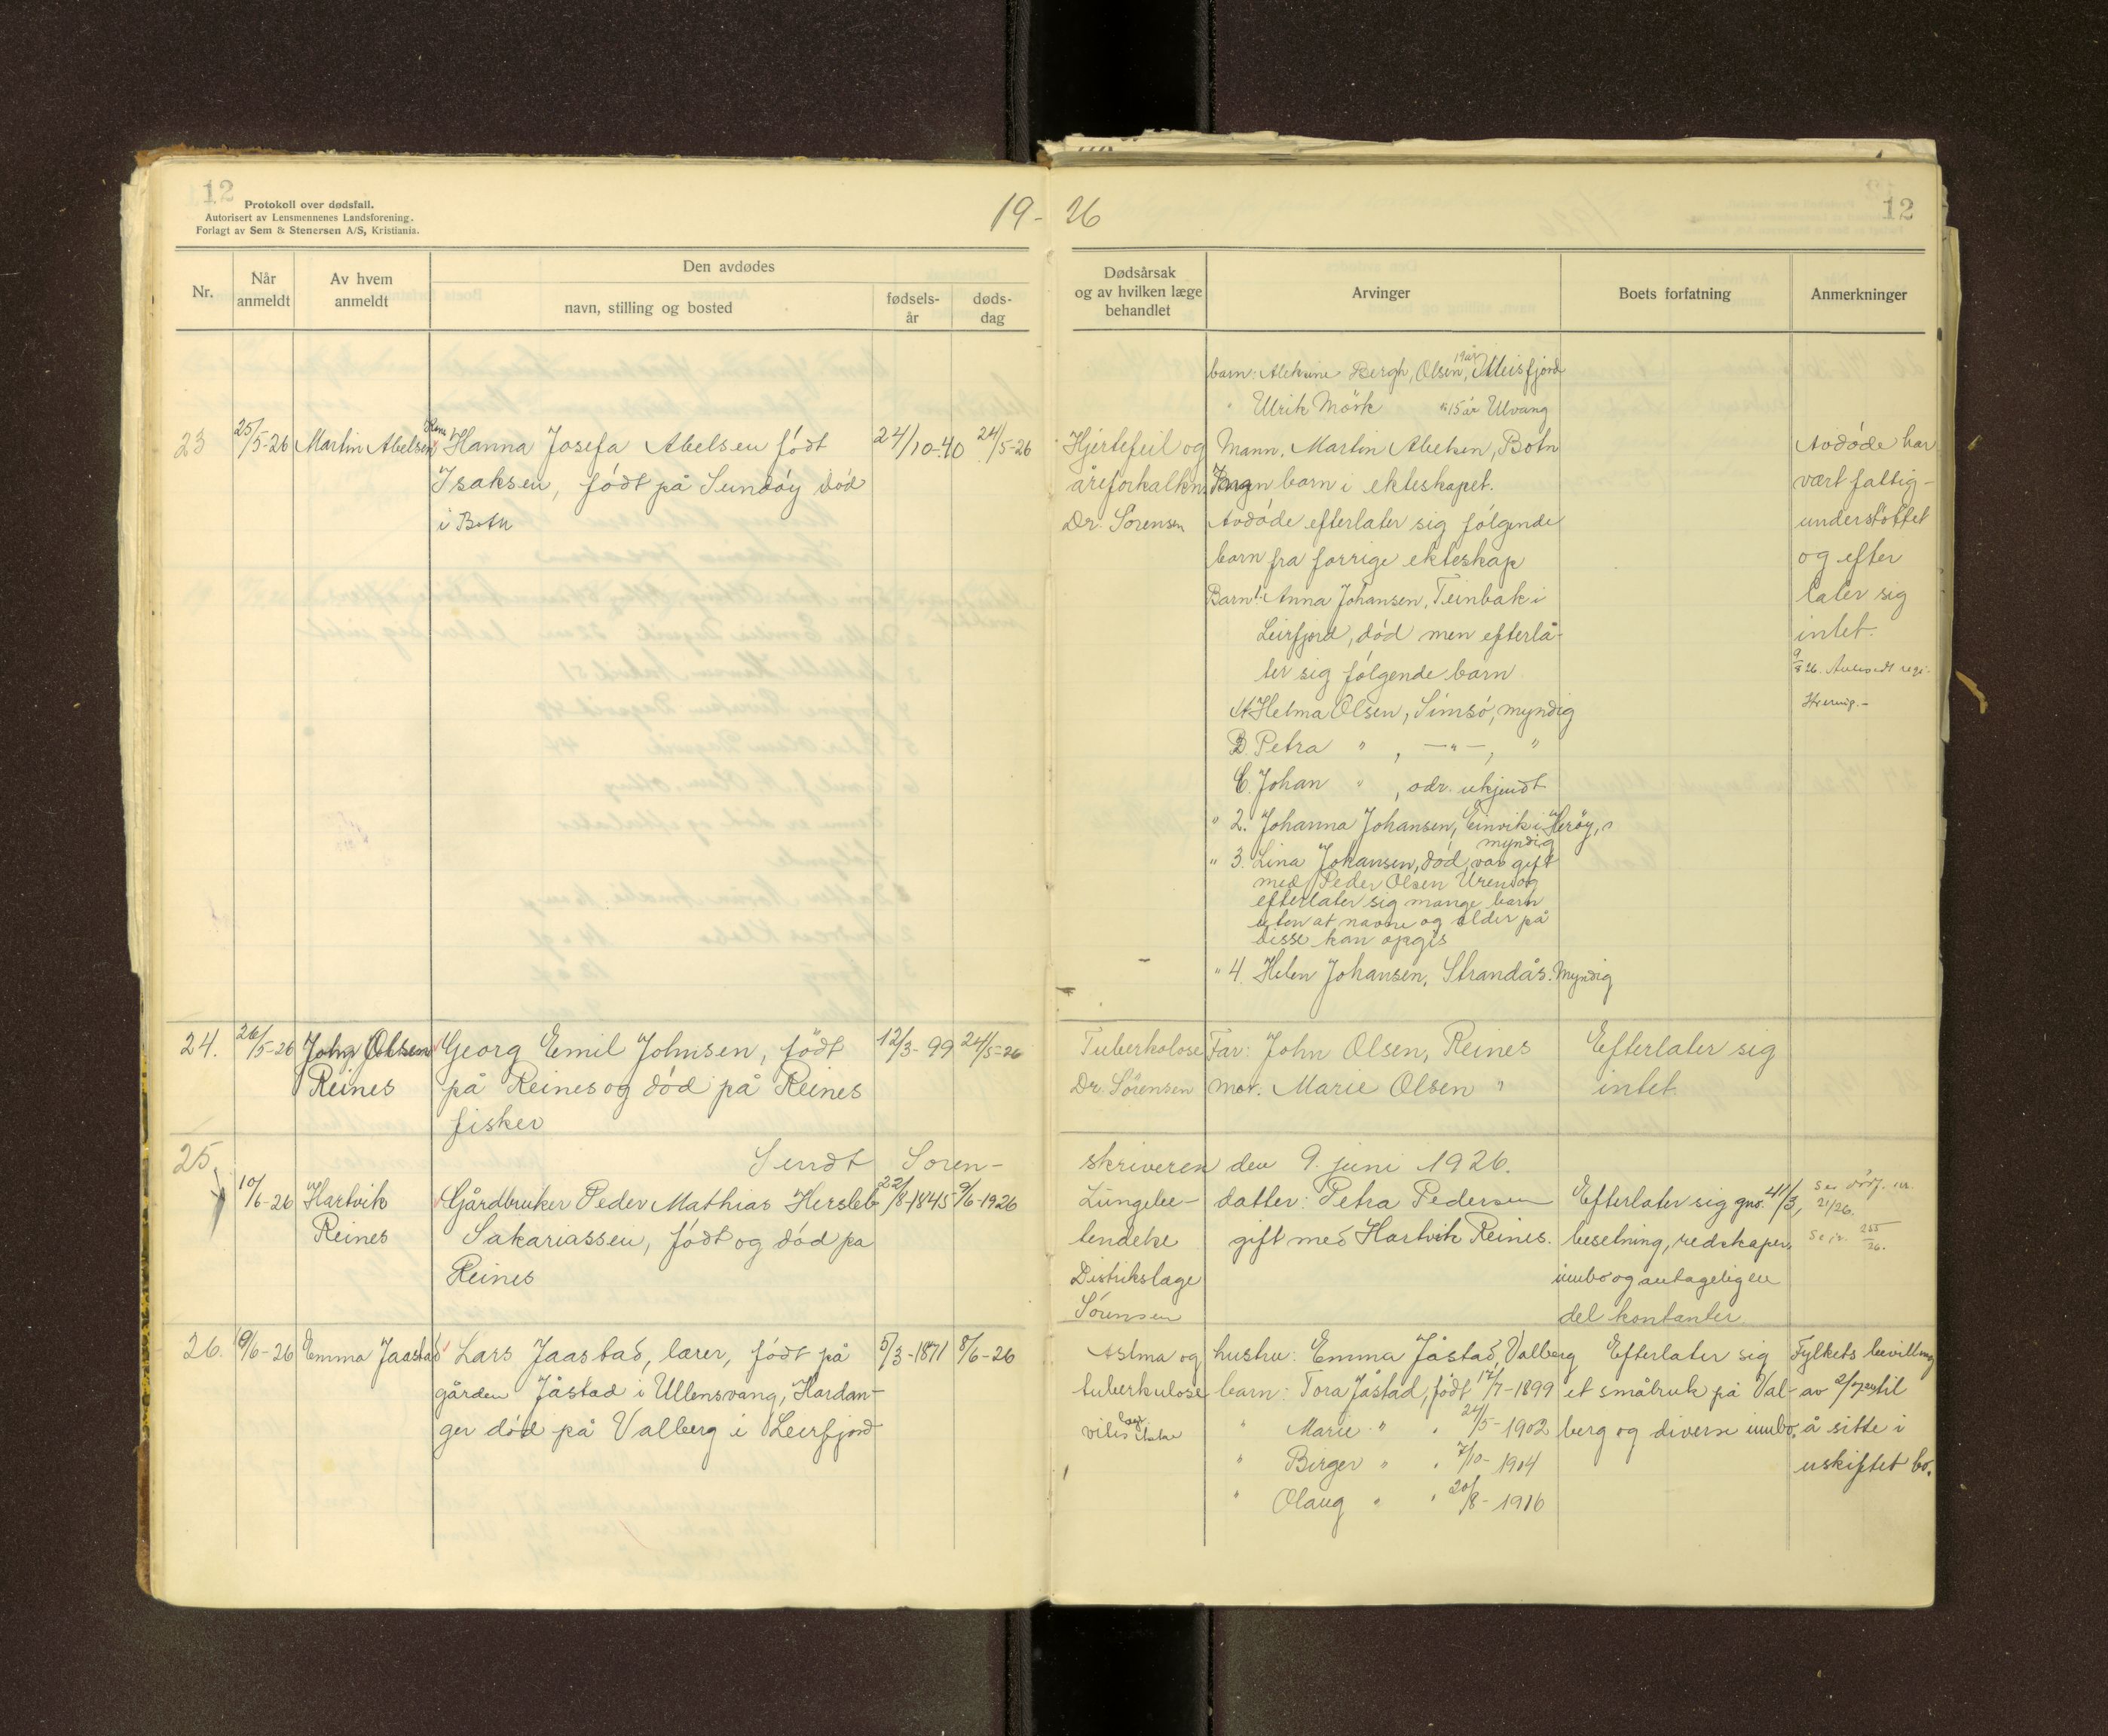 12
Protokoll over dødsfall.
Autorisert av Lensmennenes Landsforening.
Forlagt av Sem & Stenersen A/S, Kristiania.
19-26
12
Nr.
Når anmeldt
Av hvem anmeldt
Den avdødes
navn, stilling og bosted
fødsels-år
døds-dag
Dødsårsak
og av hvilken læge
behandlet
Arvinger
Boets forfatning
Anmerkninger
barn: Bergh, Olsen, 19 år
" Ulrik Mörk " 15 år Ulvang
23
25/5-26
Martin Abelsen
Hanna Josefa Abelsen født
Isaksen, født på Sundöy död
i Botn
24/10-40
24/5-26
Hjertefeil og
åreforkalkn.
Dr. Sørensen
Mann. Martin Abelsen, Botn
Ingen barn i ekteskapet.
Avdöde efterlater sig fölgende
barn fra forrige ekteskap
Barn 1. Anna Johansen, Teinbak i
Leirfjord, död men efterlå-
ter sig fölgende barn
A Helma Olsen, Simsö, myndig
B Petra " , —"—, "
C. Johan " , adr. ukjendt
" 2. Johanna Johansen, Einvik i Heröy,
myndig
" 3. Lina Johansen, död, var gift
med Peder Olsen og
efterlater sig mange barn
uten at navne og alder på
disse kan opgis
" 4. Helen Johansen, Strandås. Myndig
Avdöde har
vært fattig-
understöttet
og efter
later sig
intet.
24.
26/5-26
John Olsen
Reines
Georg Emil Johnsen, födt
på Reines og död på Reines
fisker
12/3-99
24/5-26
Tuberkolose
Dr. Sörensen
Far: John Olsen, Reines
mor. Marie Olsen "
Efterlater sig
intet
Sendt Soren-
skriveren den 9. juni 1926.
25.
10/6-26
Hartvik
Reines
Gårdbruker Peder Mathias Hersleb
Sakariassen, födt og död på
Reines
22/8-1845
9/6-1926
Lungebe-
tendelse
Distrikslæge
Sörensen
datter: Petra Pedersen
gift med Hartvik Reines.
Efterlater sig gno. 41/3,
besetning, redskaper,
innbo og antageligen
del kontanter
21/26.
26.
9/6-26
Emma Jaastad
Lars Jaastad, lærer, födt på
gården Jåstad i Ullensvang, Hardan-
ger död på Valberg i Leirfjord
5/3-1871
8/6-26
Astma og
tuberkulose
hustru: Emma Jåstad, Valberg
barn: Tora Jåstad, födt 12/7-1899
" Marie " " 24/5-1902
" Birger " " 7/10-1904
" Olaug " " 20/8-1916
Efterlater sig
et småbruk på Val-
berg og diverse innbo.
Fylkets bevilling
av 2/7 26 til
å sitte i
uskiftet bo.